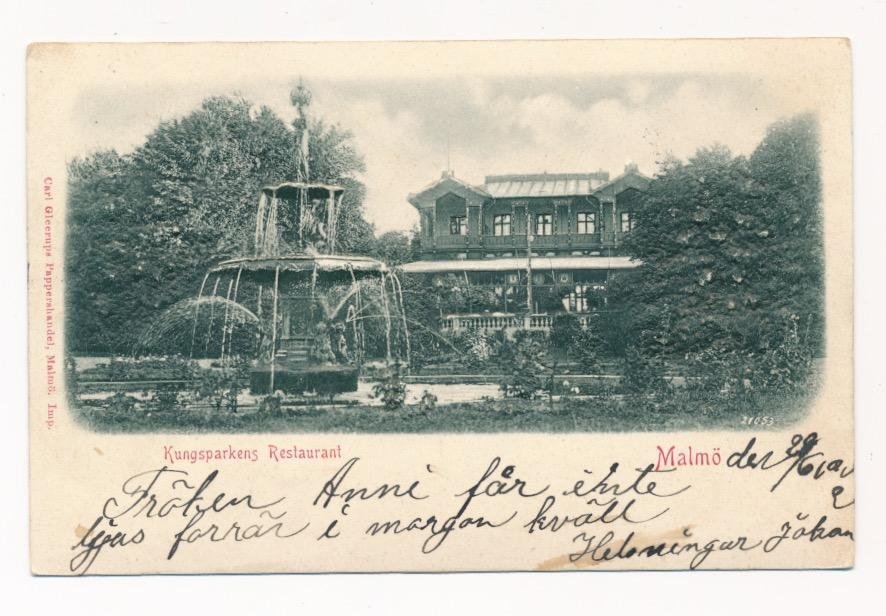 Carl Gleerups Pappershandel, Malmö. Imp.
21053
Kungsparkens Restaurant
Malmö den 29/6
Fröken Anni får ikte
ljus förrär i morgon kväll
Helsningar Jökan